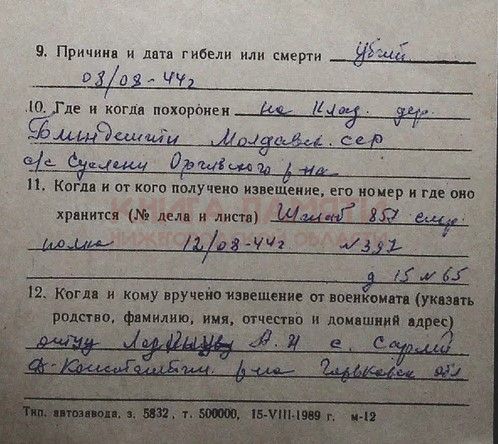 9. Причина и дата гибели или смерти убит
08/08-44г
10. Где и когда похоронен на клад. дер.
Молдавск. сср
с/с Суслени Оргеевского р-на
11. Когда и от кого получено извещение, его номер и где оно
хранится (№ дела и листа) Штаб 857 стр.
полка 12/08-44г N397
д 15 N 65
12. Когда и кому вручено извещение от военкомата (указать
родство, фамилию, имя, отчество и домашний адрес)
отцу А. И с. Сарлей
Д-Константин. р-на Горьковск обл
Тип. автозавода, з. 5832, т. 500000, 15-VIII-1989 г. м-12
КНИГА ПАМЯТИ
НИЖЕГОРОДСКОЙ ОБЛАСТИ